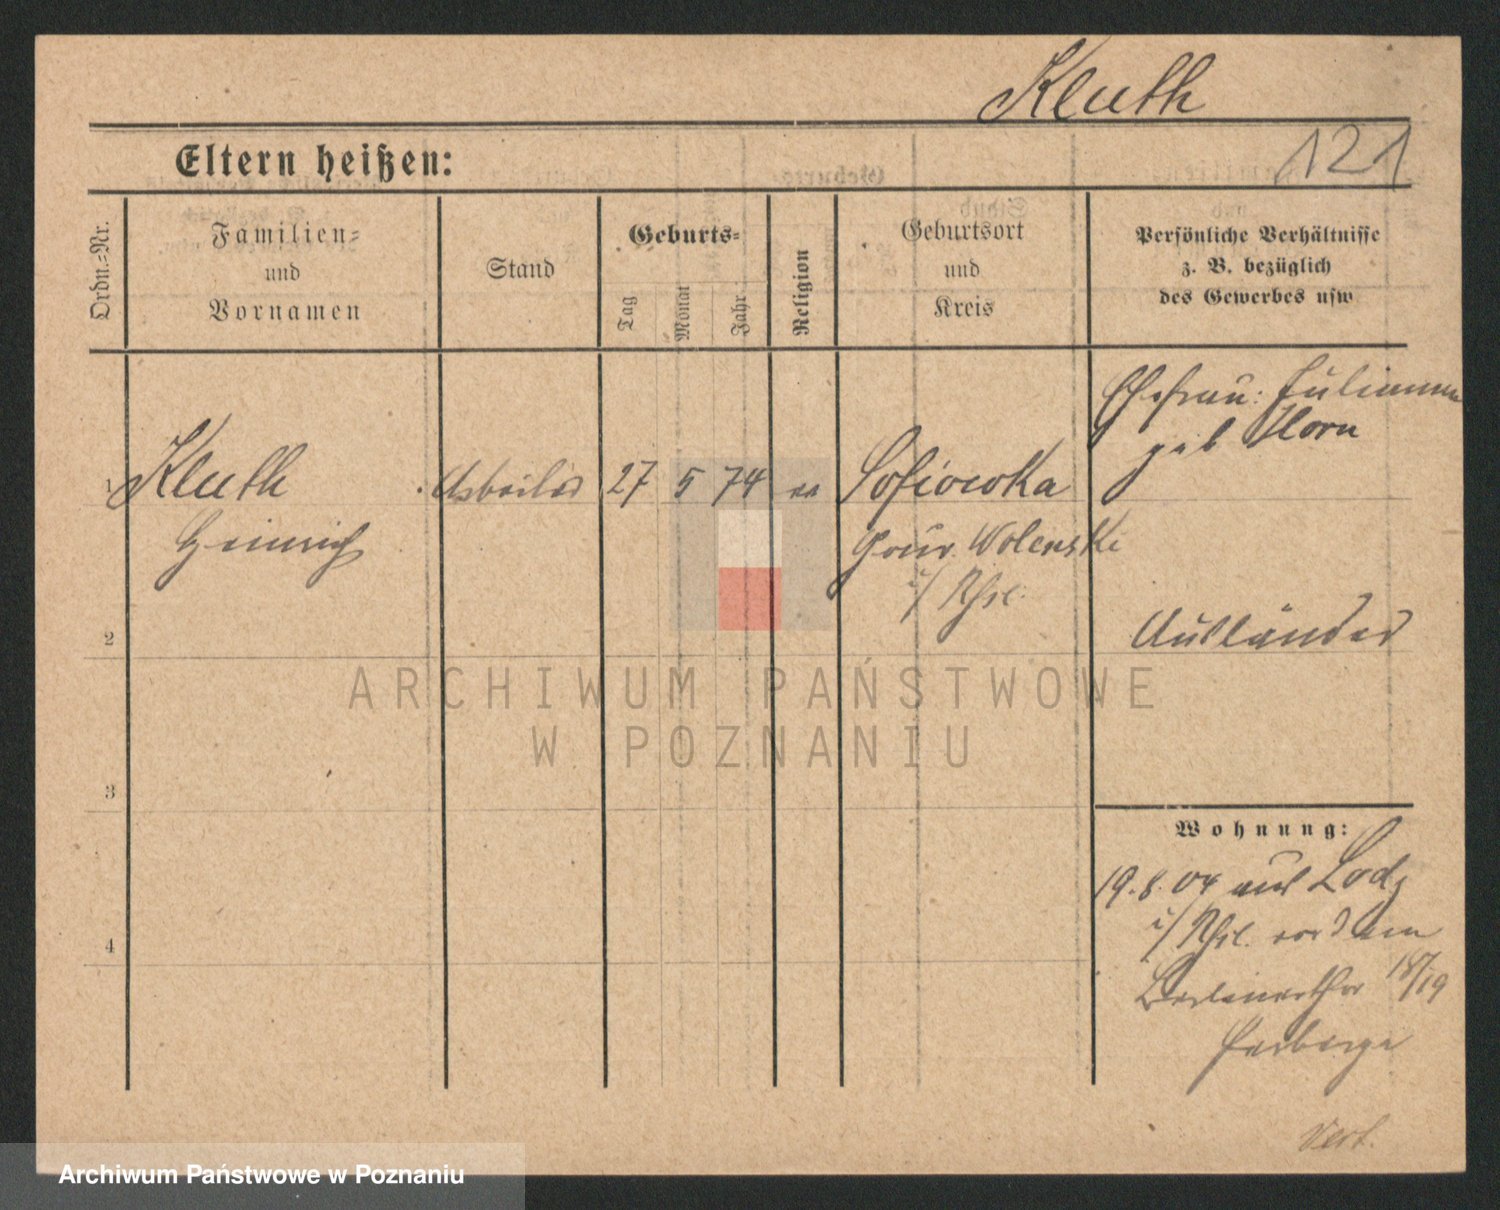 Kluth
121
Eltern heißen:
Ordn.=Nr.
Familien=
und
Vornamen
Stand
Geburts=
Tag
Monat
Jahr
Religion
Geburtsort
und
Kreis
Persönliche Verhältnisse
z. B. bezüglich
des Gewerbes usw
Ehefrau: Julianna
geb Horn
1 Kluth Arbeiter 27 5 74 ev Sofiowka
Heinrich Gouv. Wolenski
i/ Rßl.
2
Ausländer
3
4
Wohnung:
19.8.04 aus Lodz
i/ Rßl. vor dem
Berlinerthor 18/19
Herberge
Vert.
ARCHIWUM PAŃSTWOWE
W POZNANIU
Archiwum Państwowe w Poznaniu